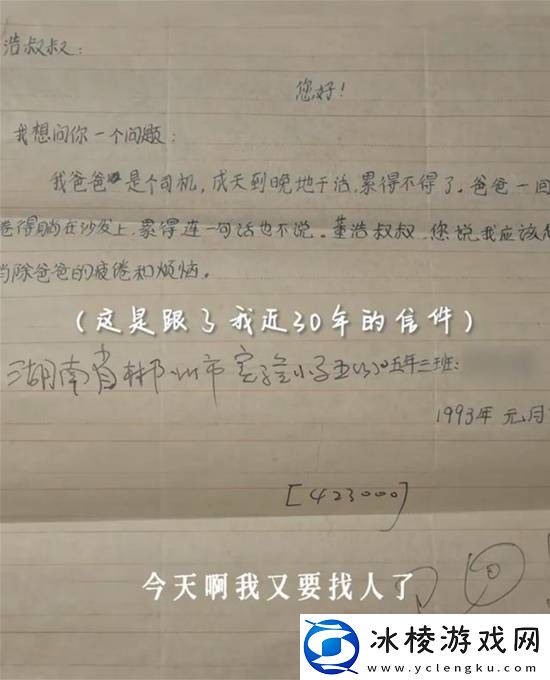 浩叔叔:
您好!
我想问你一个问题:
我爸爸是个司机,成天到晚地干活,累得不得了。爸爸一回
倦得躺在沙发上,累得连一句话也不说。董浩叔叔,您说我应该怎
消除爸爸的疲倦和烦恼。
(这是跟了我近30年的信件)
湖南省郴州市实验小学五(3)五年三班:
1993年元月
[423000]
今天啊我又要找人了
冰棱游戏网
www.yclengku.com